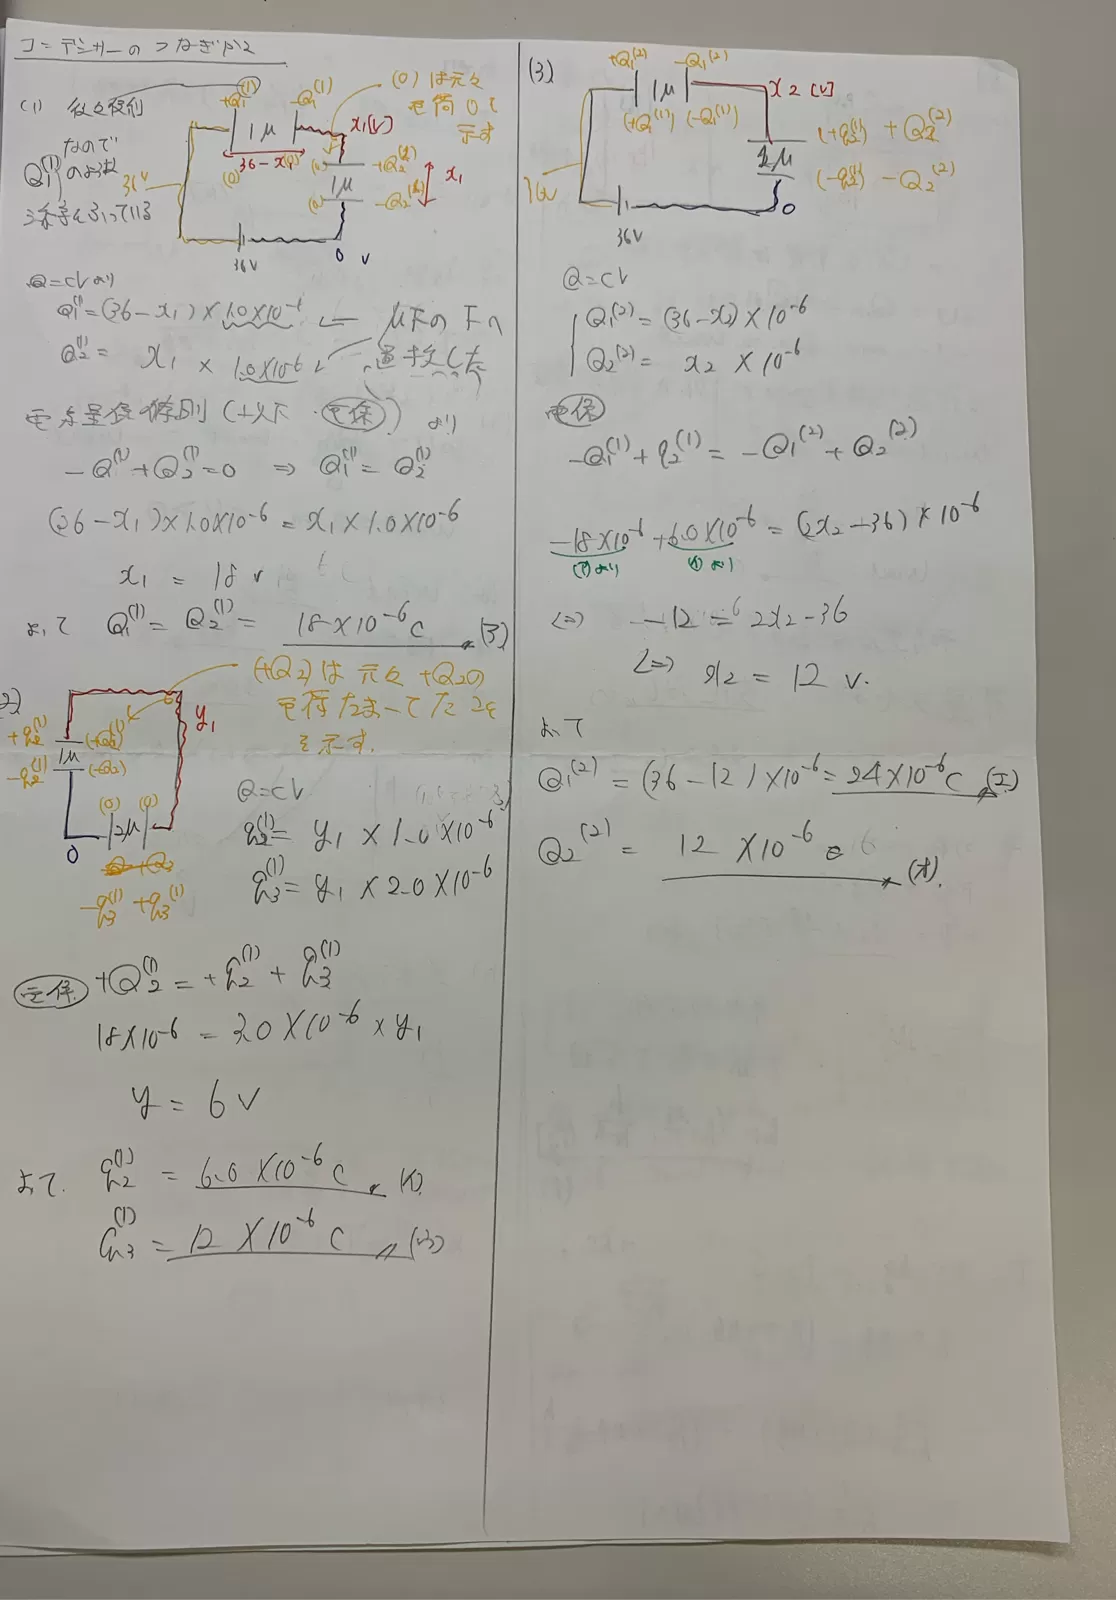 コンデンサーのつなぎかえ
(1) 後々複雑
なので
Q₁⁽¹⁾のような
文字を使っている
+Q₁⁽¹⁾ -Q₁⁽¹⁾
1μ
36-x₁
x₁[V]
(0)は元々
電荷0を
示す
36V
(0)
(0) +Q₂⁽¹⁾
1μ
(0) -Q₂⁽¹⁾
x₁
36V
0 V
Q=CVより
Q₁⁽¹⁾=(36-x₁)×1.0×10⁻⁶ ← μFのFへ
Q₂⁽¹⁾= x₁ × 1.0×10⁻⁶ 直換した
電気量保存則(以下 電保) より
-Q₁⁽¹⁾+Q₂⁽¹⁾=0 ⇒ Q₁⁽¹⁾=Q₂⁽¹⁾
(36-x₁)×1.0×10⁻⁶=x₁×1.0×10⁻⁶
x₁ = 18 V
よって Q₁⁽¹⁾=Q₂⁽¹⁾= 18×10⁻⁶C (ア)
2)
(+Q₂)は元々+Q₂の
電荷たまってたこと
を示す.
y₁
+q₂⁽¹⁾ (+Q₂⁽¹⁾)
1μ
-q₂⁽¹⁾ (-Q₂)
(0) (0)
2μ
0
-q₃⁽¹⁾ +q₃⁽¹⁾
Q=CV
q₂⁽¹⁾= y₁ × 1.0×10⁻⁶
q₃⁽¹⁾= y₁ × 2.0×10⁻⁶
電保 +Q₂⁽¹⁾=+q₂⁽¹⁾+q₃⁽¹⁾
18×10⁻⁶ = 3.0×10⁻⁶×y₁
y = 6 V
よって. q₂⁽¹⁾ = 6.0×10⁻⁶ C (イ)
q₃⁽¹⁾ = 12×10⁻⁶ C (ウ)
(3)
+Q₁⁽²⁾ -Q₁⁽²⁾
1μ
x₂[V]
(+Q₁⁽¹⁾) (-Q₁⁽¹⁾)
(+q₂⁽¹⁾) +Q₂⁽²⁾
1μ
(-q₂⁽¹⁾) -Q₂⁽²⁾
36V
36V
0
Q=CV
Q₁⁽²⁾=(36-x₂)×10⁻⁶
Q₂⁽²⁾= x₂ ×10⁻⁶
電保
-Q₁⁽¹⁾+q₂⁽¹⁾=-Q₁⁽²⁾+Q₂⁽²⁾
-18×10⁻⁶+6.0×10⁻⁶=(2x₂-36)×10⁻⁶
(ア)より (イ)より
⇔ -12 = 2x₂-36
⇔ x₂ = 12 V.
よって
Q₁⁽²⁾ = (36-12)×10⁻⁶=24×10⁻⁶C (エ)
Q₂⁽²⁾ = 12×10⁻⁶ C (オ).